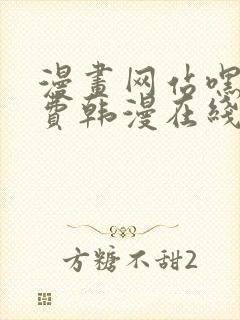 漫畫网站嘿
費韩漫在线
方糖不甜2